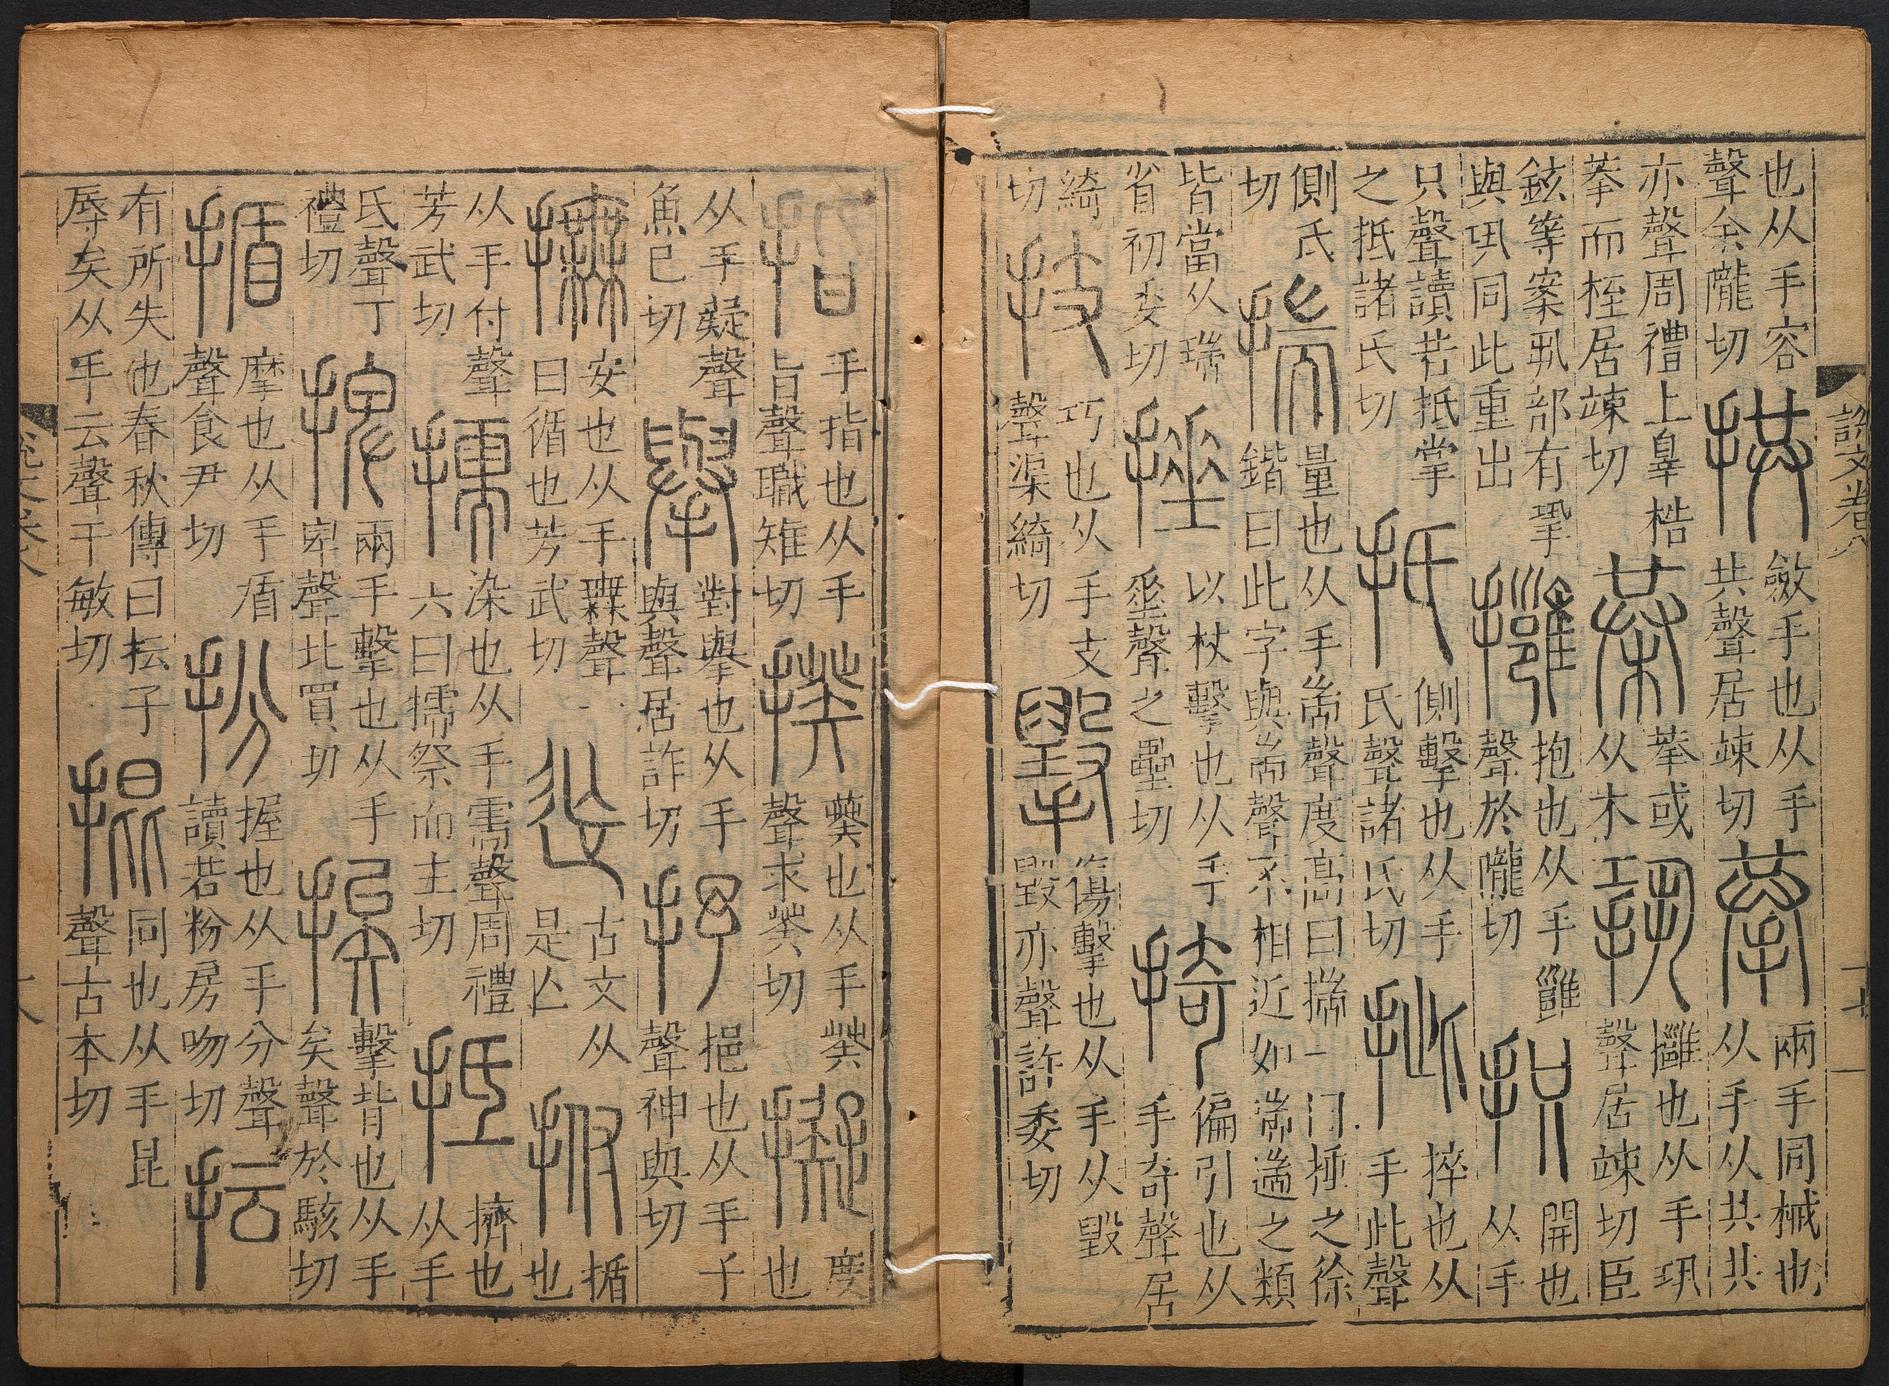 說文卷八
十七
也从手容
聲余隴切
拱
斂手也从手
共聲居竦切
拲
兩手同械也
从手从共共
亦聲周禮上辠梏
拲而桎居竦切
𣐊
拲或
从木
㧬
也从手巩
聲居竦切臣
鉉等案丮部有巩
與巩同此重出
擁
抱也从手雝
聲於隴切
㧉
開也
从手
只聲讀若抵掌
之抵諸氏切
扺
側擊也从手
氏聲諸氏切
㧗
捽也从
手此聲
側氏
切
揣
量也从手耑聲度高曰揣一曰捶之徐
鍇曰此字與耑聲不相近如喘遄之類
皆當从瑞
省初委切
捶
以杖擊也从手
垂聲之壘切
掎
偏引也从
手奇聲居
綺
切
技
巧也从手支
聲渠綺切
傷擊也从手从毀
毀亦聲許委切
指
手指也从手
旨聲職雉切
揆
葵也从手癸
聲求癸切
擬
度
也
从手疑聲
魚巳切
擧
對舉也从手
與聲居詐切
抒
挹也从手予
聲神與切
撫
安也从手𣞤聲
曰循也芳武切
古文从
是亾
㧊
揗
也
从手付聲
芳武切
擩
染也从手需聲周禮
六曰擩祭而主切
抵
擠也
从手
氐聲丁
禮切
捭
兩手擊也从手
卑聲北買切
挨
擊背也从手
矣聲於駭切
揗
摩也从手盾
聲食尹切
扮
握也从手分聲
讀若粉房吻切
抎
有所失也春秋傳曰抎子
辱矣从手云聲于敏切
掍
同也从手昆
聲古本切